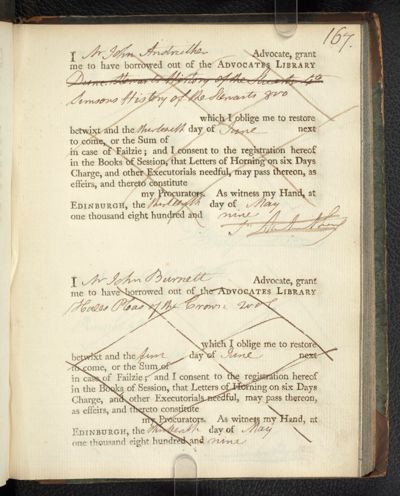 167.
I Mr John Andrew Advocate, grant
me to have borrowed out of the ADVOCATES LIBRARY
History of the Stewarts 4o
Simsons History of the Stewarts 8vo
which I oblige me to restore
betwixt and the thirteenth day of June next
to come, or the Sum of
in case of Failzie; and I consent to the registration hereof
in the Books of Session, that Letters of Horning on six Days
Charge, and other Executorials needful, may pass thereon, as
effeirs, and thereto constitute
my Procurators. As witness my Hand, at
EDINBURGH, the thirteenth day of May
one thousand eight hundred and nine
I Mr John Burnett Advocate, grant
me to have borrowed out of the ADVOCATES LIBRARY
Hales Pleas of the Crown 2 vol
which I oblige me to restore
betwixt and the day of June next
to come, or the Sum of
in case of Failzie; and I consent to the registration hereof
in the Books of Session, that Letters of Horning on six Days
Charge, and other Executorials needful, may pass thereon,
as effeirs, and thereto constitute
my Procurators. As witness my Hand, at
EDINBURGH, the thirteenth day of May
one thousand eight hundred and nine